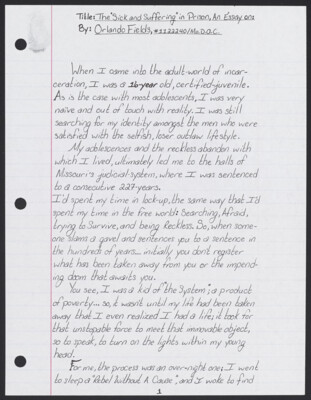 Title: The "Sick and Suffering" in Prison, An Essay on:
By: Orlando Fields, #1122240/Mo.D.O.C.
When I came into the adult-world of incar-
ceration, I was a 16-year old, certified-juvenile.
As is the case with most adolescents, I was very
naive and out of touch with reality. I was still
searching for my identity amongst the men who were
satisfied with the selfish, loser outlaw lifestyle.
My adolescences and the reckless abandon with
which I lived, ultimately led me to the halls of
Missouri's judicial-system, where I was sentenced
to a consecutive 227-years.
I'd spent my time in lock-up, the same way that I'd
spent my time in the free world: Searching, Afraid,
trying to Survive, and being Reckless. So, when some-
one slams a gavel and sentences you to a sentence in
the hundreds of years... initially you don't register
what has been taken away from you or the impend-
ing doom that awaits you.
You see, I was a kid of "the System"; a product
of poverty... so, it wasn't until my life had been taken
away that I even realized I had a life; it took for
that unstopable force to meet that immovable object,
so to speak, to turn on the lights within my young
head.
For me, the process was an over-night one: I went
to sleep a "Rebel Without A Cause", and I woke to find
1